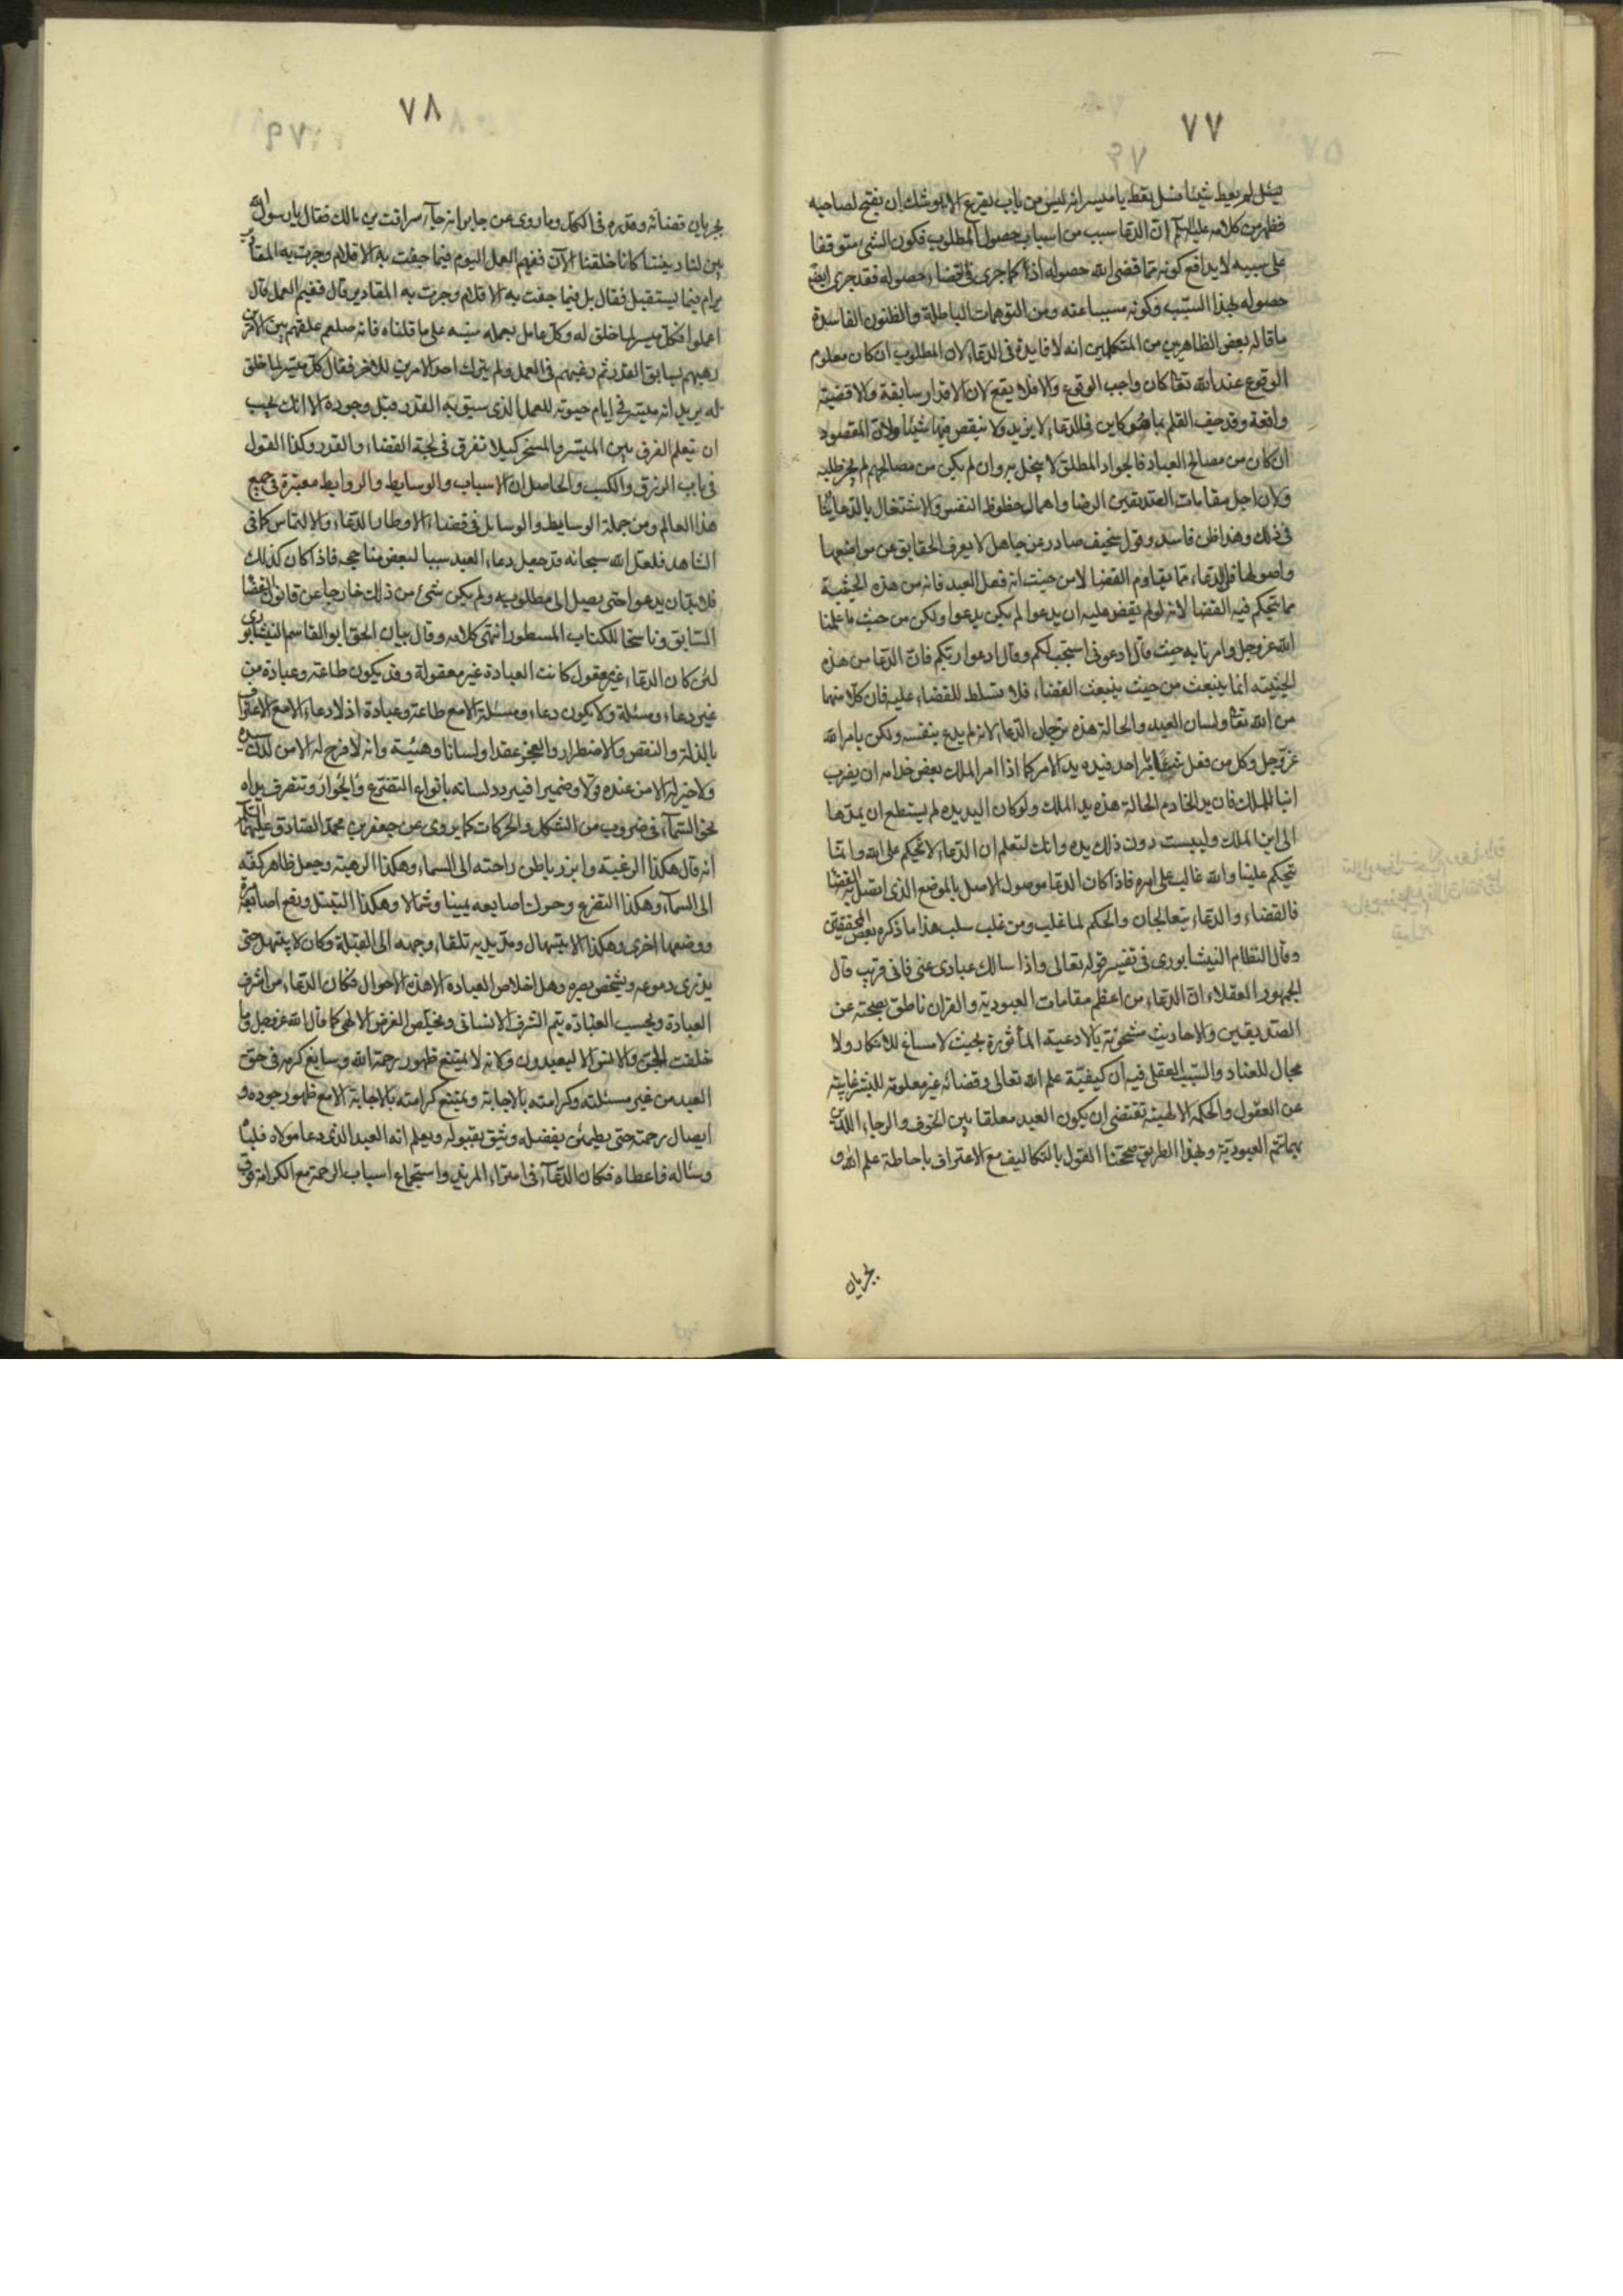 ٧٧
يسئل لم يعط شيئا فسل تعط يا ميسر انه ليس من باب يقرع الا يوشك ان يفتح لصاحبه
فظهر من كلامه عليه السلم ان الدعا سبب من اسباب حصول المطلوب فكون الشئ متوقفا
على سببه لا يدافع كونه مما قضى الله حصوله اذا كما جرى في القضاء حصوله فقد جرى ايضا
حصوله بهذا السبب وكونه مسببا عنه ومن التوهمات الباطلة والظنون الفاسدة
ما قاله بعض الظاهرين من المتكلمين انه لا فايدة في الدعاء لان المطلوب ان كان معلوم
الوقوع عند الله تعا كان واجب الوقوع والا فلا يقع لان الاقدار سابقة والاقضية
واقعة وقد جف القلم بما هو كاين فالدعاء لا يزيد ولا ينقص فيها شيئا ولان المقصود
ان كان من مصالح العباد فالجواد المطلق لا يبخل به وان لم يكن من مصالحهم لم يجز طلبه
ولان اجل مقامات الصديقين الرضا واهمال حظوظ النفس والاشتغال بالدعا ينافي
في ذلك وهذا ظن فاسد وقول سخيف صادر عن جاهل لا يعرف الحقايق عن مواضعها
واصولها فالدعاء مما يقاوم القضا لا من حيث انه فعل العبد فانه من هذه الحيثية
مما يتحكم فيه القضا لانه لو لم يقض عليه ان يدعوا لم يكن يدعوا ولكن من حيث ما علمنا
الله عز وجل وامرنا به حيث قال ادعونى استجب لكم وقال ادعوا ربكم فان الدعا من هذه
الحيثيته انما ينبعث من حيث ينبعث القضاء فلا تسلط للقضاء عليه فان كلا منهما
من الله تعا ولسان العبد والحالة هذه ترجمان الدعاء لانه لم يدع بنفسه ولكن بامر الله
عز وجل وكل من فعل شيئا بامر احد فيده يد الامر كما اذا امر الملك بعض خدامه ان يضرب
ابنا للملك فان يد الخادم الحالة هذه يد الملك ولو كان اليد يده لم يستطع ان يمدها
الى ابن الملك وليبست دون ذلك يده وانك لتعلم ان الدعاء لا تحكم على الله وانما
تحكم علينا والله غالب على امره فاذا كان الدعا موصول الاصل بالموضع الذى اتصل به القضا
فالقضاء والدعاء يتعالجان والحكم لما غلب ومن غلب سلب هذا ما ذكره بعض المحققين
وقال النظام النيشابورى فى تفسير قوله تعالى واذا سالك عبادى عنى فانى قريب قال
الجمهور العقلاء ان الدعاء من اعظم مقامات العبودية والقران ناطق بصحته عن
الصديقين والاحاديث مشحونة بالادعية المأثورة بحيث لا مساغ للانكار ولا
مجال للعناد والسبب العقلى فيه ان كيفيّة علم الله تعالى وقضائه غير معلومة للبشر غايبة
عن العقول والحكمة الالهية تقتضى ان يكون العبد معلقا بين الخوف والرجاء اللذين
بهما تتم العبودية وبهذا الطريق صححنا القول بالتكاليف مع الاعتراف باحاطة علم الله و
بجريان
٧٨
بجريان قضائه وقدره فى الكل وما روى عن جابر انه جآء سراقة بن مالك فقال يا رسول الله
بين لنا ديننا كانا خلقنا الآن ففيم العمل اليوم فيما جفت به الاقلام وجرت به المقادير
ام فيما يستقبل فقال بل فيما جفت به الاقلام وجرت به المقادير قال ففيم العمل قال
اعملوا فكل ميسر لما خلق له وكل عامل بعمله منبه على ما قلناه فانه صلعم علقهم بين الامرين
رهبهم بسابق القدر ثم رغبهم فى العمل ولم يترك احد الامرين للاخر فقال كل ميسر لما خلق
له يريد انه ميسر فى ايام حيوته للعمل الذى سبق به القدر قبل وجوده الا انك يجب
ان تتعلم الفرق بين الميسر والمسخر كيلا تغرق فى لجة القضاء والقدر وكذا القول
فى باب الرزق والكسب والحاصل ان الاسباب والوسايط والروابط معتبرة فى جميع
هذا العالم ومن جملة الوسايط والوسايل فى قضاء الاوطار الدعاء والالتماس كما فى
الشاهد فلعل الله سبحانه قد جعل دعاء العبد سببا لبعض مناجحه فاذا كان كذلك
فلا بد ان يدعو حتى يصل الى مطلوبه ولم يكن شئ من ذلك خارجا عن قانون القضا
السابق وناسخا للكتاب المسطور انتهى كلامه وقال بيان الحق ابو القاسم النيشابورى
لئن كان الدعاء غير معقول كانت العبادة غير معقولة وقد يكون طاعة وعبادة من
غير دعاء ومسئلة ولا يكون دعاء ومسئلة الا مع طاعة وعبادة اذ لا دعاء الا مع الاعتراف
بالذلة والنقص والاضطرار والعجز عقدا ولسانا وهيئة وانه لا فرج له الا من لدنه
ولا خير له الا من عنده قولا وضميرا فيردد لسانه بانواع التضرع والجوار وتتفرق يداه
نحو السمآء فى ضروب من الشكل والحركات كما يروى عن جعفر بن محمد الصادق عليهما السلم
انه قال هكذا الرغبة وابرز باطن راحته الى السماء وهكذا الرهبة وجعل ظاهر كفه
الى السمآء وهكذا التضرع وحرك اصابعه يمينا وشمالا وهكذا التبتل ورفع اصابعه مرة
ووضعها اخرى وهكذا الابتهال ومد يديه تلقاء وجهه الى القبلة وكان لا يبتهل حتى
يذرى دموعه ويشخص بصره وهل اخلاص العبادة الا هذه الاحوال فكان الدعاء من اشرف
العبادة وبحسب العبادة يتم الشرف الانسانى ويخلص الغرض الالهى كما قال الله عز وجل وما
خلقت الجن والانس الا ليعبدون وكانه لا يمتنع ظهور رحمة الله وسابغ كرمه فى حق
العبد من غير مسئلته وكرامته بالاجابة ويمتنع كرامته بالاجابة الا مع ظهور جوده و
ايصال رحمته حتى يطمئن بفضله ويثق بقبوله ويعلم انه العبد الذى دعا مولاه فلباه
وسئاله فاعطاه فكان الدعآء فى امتراء المزيد واستجماع اسباب الرحمة مع الكرامة فوق